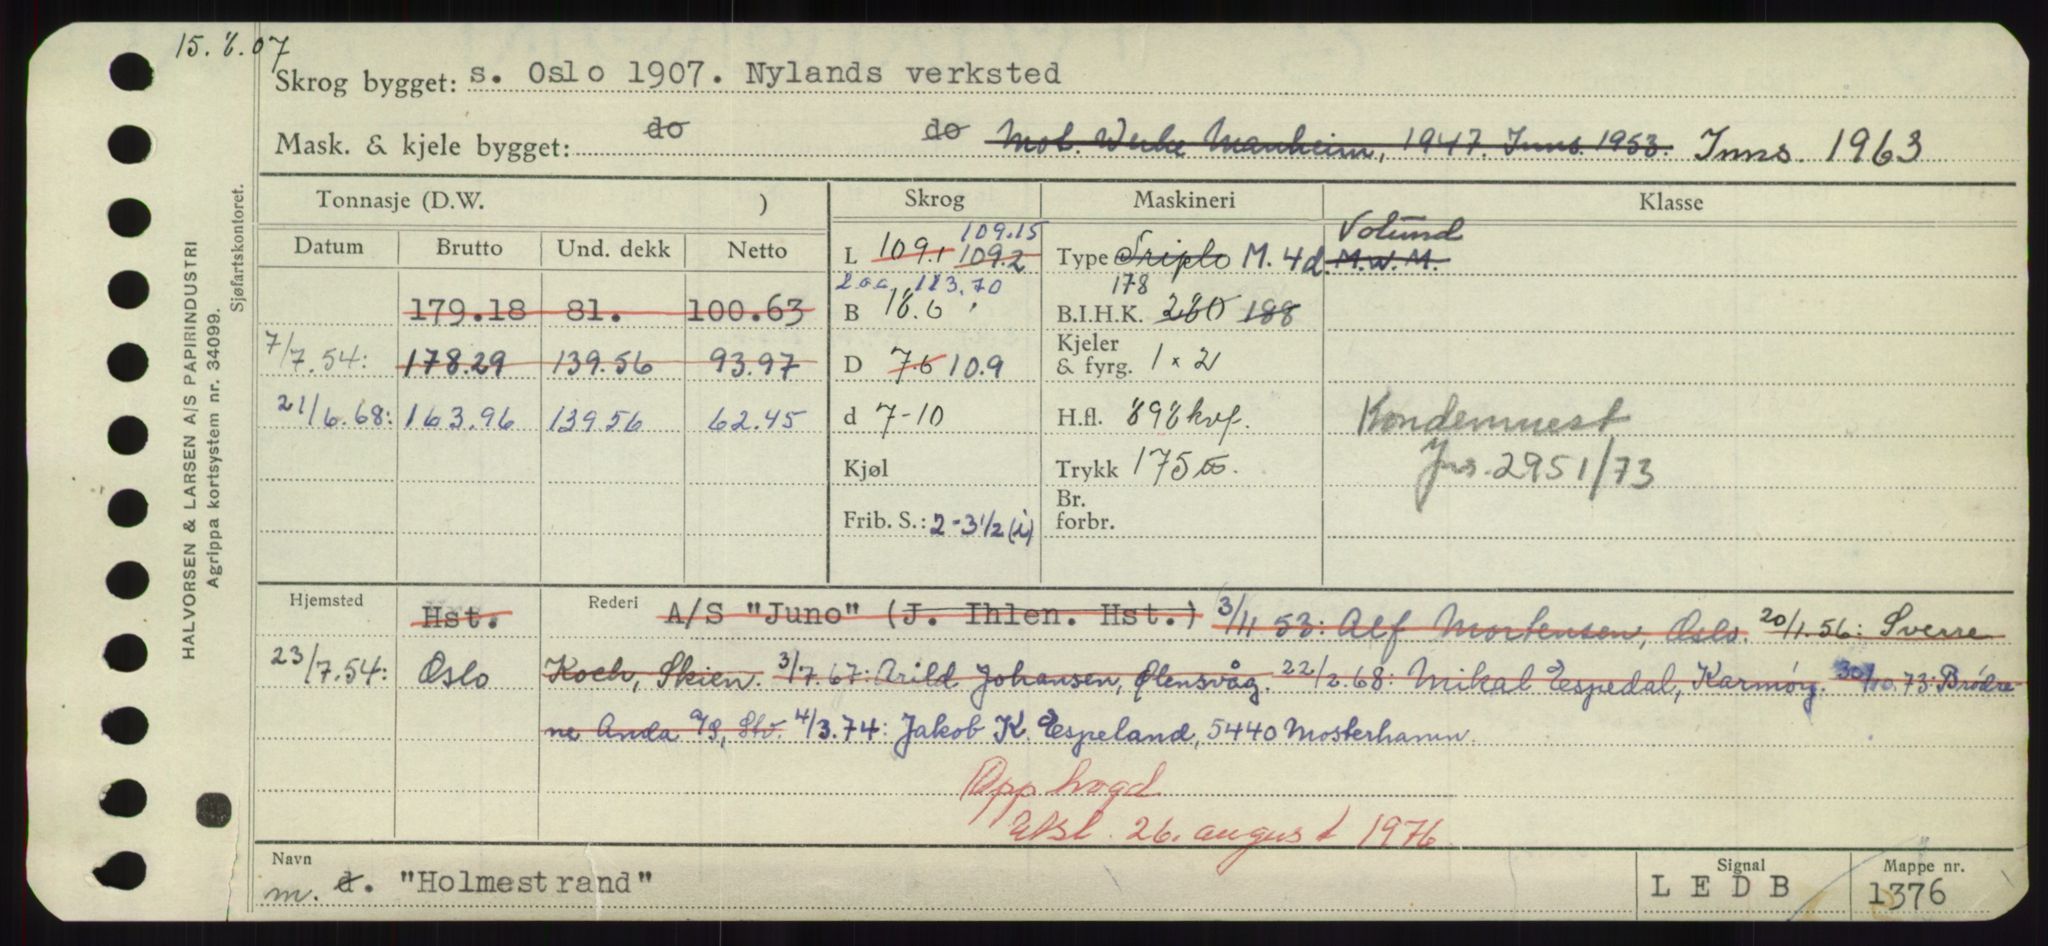 15.8.07
Skrog bygget: s. Oslo 1907. Nylands verksted
Mask. & kjele bygget: do do Mot. Werke Manheim, 1947. Inns. 1953. Inns. 1963
Tonnasje (D.W. ) Skrog Maskineri Klasse
Datum Brutto Und. dekk Netto
L 109,1 109.2 109.15
Type Triple M. 4 d. M.W.M. Vølund
L.o.a. 113.70
179.18 81. 100.63
B 18.6
B.I.H.K. 280 188 178
7/7.54: 178.29 139.56 93.97
D 7.6 10.9
Kjeler & fyrg. 1 × 2
21/6.68: 163.96 139.56 62.45
d 7-10
H.fl. 898 kvf.
Kondemnert
Kjøl
Trykk 175 lbs.
Jns. 2951/73
Frib. S.: 2-3 1/2 (i)
Br. forbr.
Hjemsted Hst. Rederi A/S "Juno" (J. Ihlen. Hst.) 3/11 53: Alf Mortensen, Oslo. 20/1.56: Sverre
23/7.54: Oslo Koch, Skien. 3/7.67: Arild Johansen, Ølensvåg. 22/2.68: Mikal Espedal, Karmøy. 30/10.73: Brødre-
ne Anda A/S, Stv. 4/3.74: Jakob K. Espeland, 5440 Mosterhamn.
Opphogd
26. august 1976
Navn Signal Mappe nr.
m. d. "Holmestrand" L E D B 1376
HALVORSEN & LARSEN A/S PAPIRINDUSTRI
Agrippa kortsystem nr. 34099.
Sjøfartskontoret.